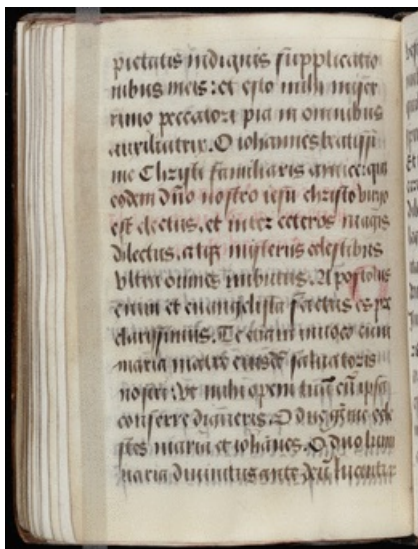 pietatis indignis supplicatio
nibus meis: et esto mihi miser
rimo peccatori pia in omnibus
auxiliatrix. O iohannes beatissi
me Christi familiaris amice: qui
eodem dño nostro iesu christo virgo
est electus. et inter ceteros magis
dilectus. atq; misteriis celestibus
vltra omnes imbutus. Apostolus
enim et euangelista factus es pre
clarissimus. Te etiam inuoco cum
maria matre eiusdē saluatoris
nostri. vt mihi opem tuā cū ipsa
conferre digneris. O due gēme cele
stes maria et iohānes. O duo lumi
naria diuinitus ante deū lucentia